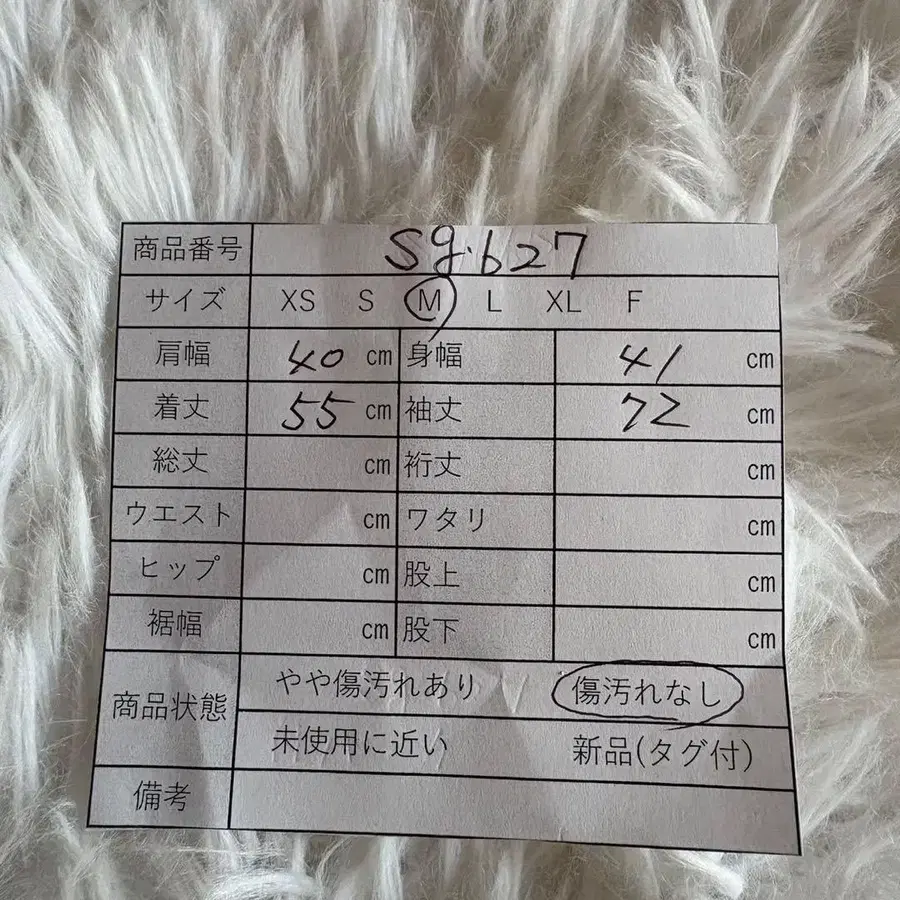 商品番号 sg.627
サイズ XS S M L XL F
肩幅 40 cm 身幅 41 cm
着丈 55 cm 袖丈 72 cm
総丈 cm 裄丈 cm
ウエスト cm ワタリ cm
ヒップ cm 股上 cm
裾幅 cm 股下 cm
商品状態 やや傷汚れあり 傷汚れなし
未使用に近い 新品(タグ付)
備考